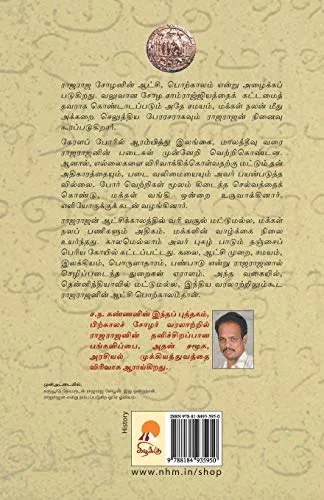 ராஜராஜ சோழனின் ஆட்சி, பொற்காலம் என்று அழைக்கப்
படுகிறது. வலுவான சோழ சாம்ராஜ்ஜியத்தைக் கட்டமைத்
தவராக கொண்டாடப்படும் அதே சமயம், மக்கள் நலன் மீது
அக்கறை செலுத்திய பேரரசராகவும் ராஜராஜன் நினைவு
கூரப்படுகிறார்.
கேரளப் போரில் ஆரம்பித்து இலங்கை, மாலத்தீவு வரை
ராஜராஜனின் படைகள் முன்னேறி வெற்றிகொண்டன.
ஆனால், எல்லைகளை விரிவாக்கிக்கொள்வதற்கு மட்டும்தன்
அதிகாரத்தையும், படை வலிமையையும் அவர் பயன்படுத்த
வில்லை. போர் வெற்றிகள் மூலம் கிடைத்த செல்வத்தைக்
கொண்டு, மக்கள் வங்கி ஒன்றை உருவாக்கினார்.
எளியோருக்குக்கடன் வழங்கினார்.
ராஜராஜன் ஆட்சிக்காலத்தில் வரி வசூல் மட்டுமல்ல, மக்கள்
நலப் பணிகளும் அதிகம். மக்களின் வாழ்க்கை நிலை
உயர்ந்தது. காலமெல்லாம் அவர் புகழ் பாடும் தஞ்சைப்
பெரிய கோயில் கட்டப்பட்டது. கலை, ஆட்சி முறை, சமயம்,
இலக்கியம், பொருளாதாரம், பண்பாடு என்று ராஜராஜனால்
செழிப்படைந்த துறைகள் ஏராளம். அந்த வகையில்,
தென்னிந்தியாவில் மட்டுமல்ல, இந்திய வரலாற்றிலும்கூட
ராஜராஜனின் ஆட்சி பொற்காலம்தான்.
ச.ந. கண்ணனின் இந்தப் புத்தகம்,
பிற்காலச் சோழர் வரலாற்றில்
ராஜராஜனின் தனிச்சிறப்பான
பங்களிப்பை, அதன் சமூக,
அரசியல் முக்கியத்துவத்தை
விரிவாக ஆராய்கிறது.
முன்அட்டையில்,
History
கிழக்கு
ISBN 978-81-8493-595-0
9 788184 935950
www.nhm.in/shop